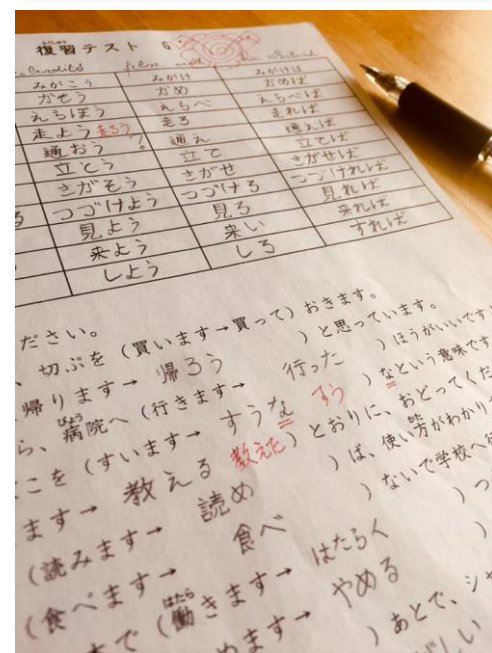 ふくしゅう
復習テスト 6
みがこう みがけ みがけば
かそう かめ かめば
えらぼう えらべ えらべば
走よう 走ろう 走る 走れば
通おう ? 通え 通えば
立とう 立て 立てば
さがそう さがせ さがせば
つづけよう つづけろ つづければ
見よう 見ろ 見れば
来よう 来い 来れば
しよう しろ すれば
ださい。
、切ぶを(買います→買って)おきます。
帰ります→ 帰ろう )と思っています。
ら、病院へ(行きます→ 行った )ほうがいいです
びょう
こを(すいます→ すうな すう )なという意味です
ます→ 教える 教えた )とおりに、おどってくだ
(読みます→ 読め )ば、使い方がわかり
かた
(食べます→ 食べ )ないで学校へ行
まで(働きます→ はたらく )つ
はたら
めます→ やめる )
)あとで、シャ
しい